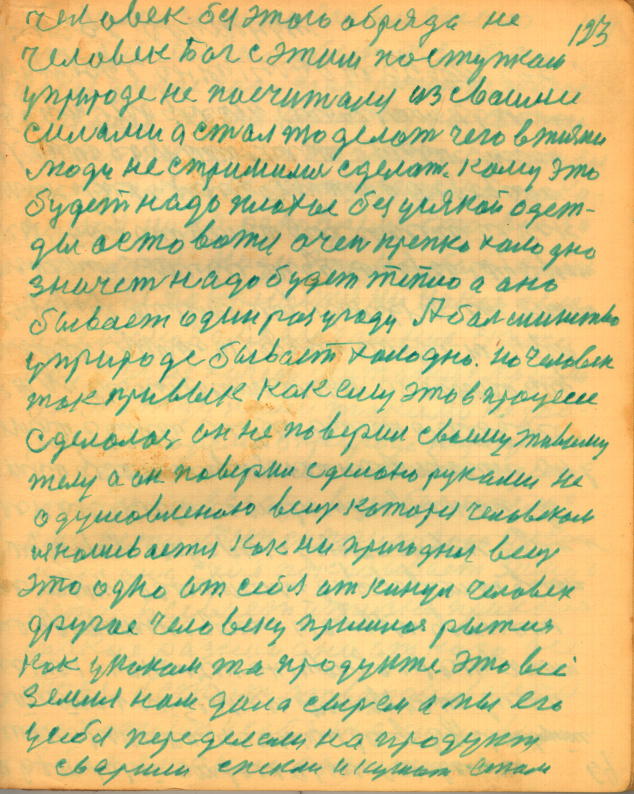 123
человек без этого обряда не
человек Бог с этим поступком
у природе не посчитался из своими
силами а стал то делат чего в жизни
люди не стримилися сделат. Кому это
будет надо плохое без усякой одеж-
ды остоватся очен крепко холодно
значет надо будет тепло а оно
бывает один раз у году А балшинство
у природе бывает холодно. Но человек
так привык как ему это в процесе
сделалос он не поверил своему живому
телу а он поверил сделоно руками не
одушовленою вещ котора человеком
изнашивается как ни пригодная вещ
это одно от себя откинул человек
другае человеку пришлося рытися
как у каком та продукте. Это всё
земля нам дала сырем а мы его
у себя переделали на продукт
сварили спекли и кушат стали